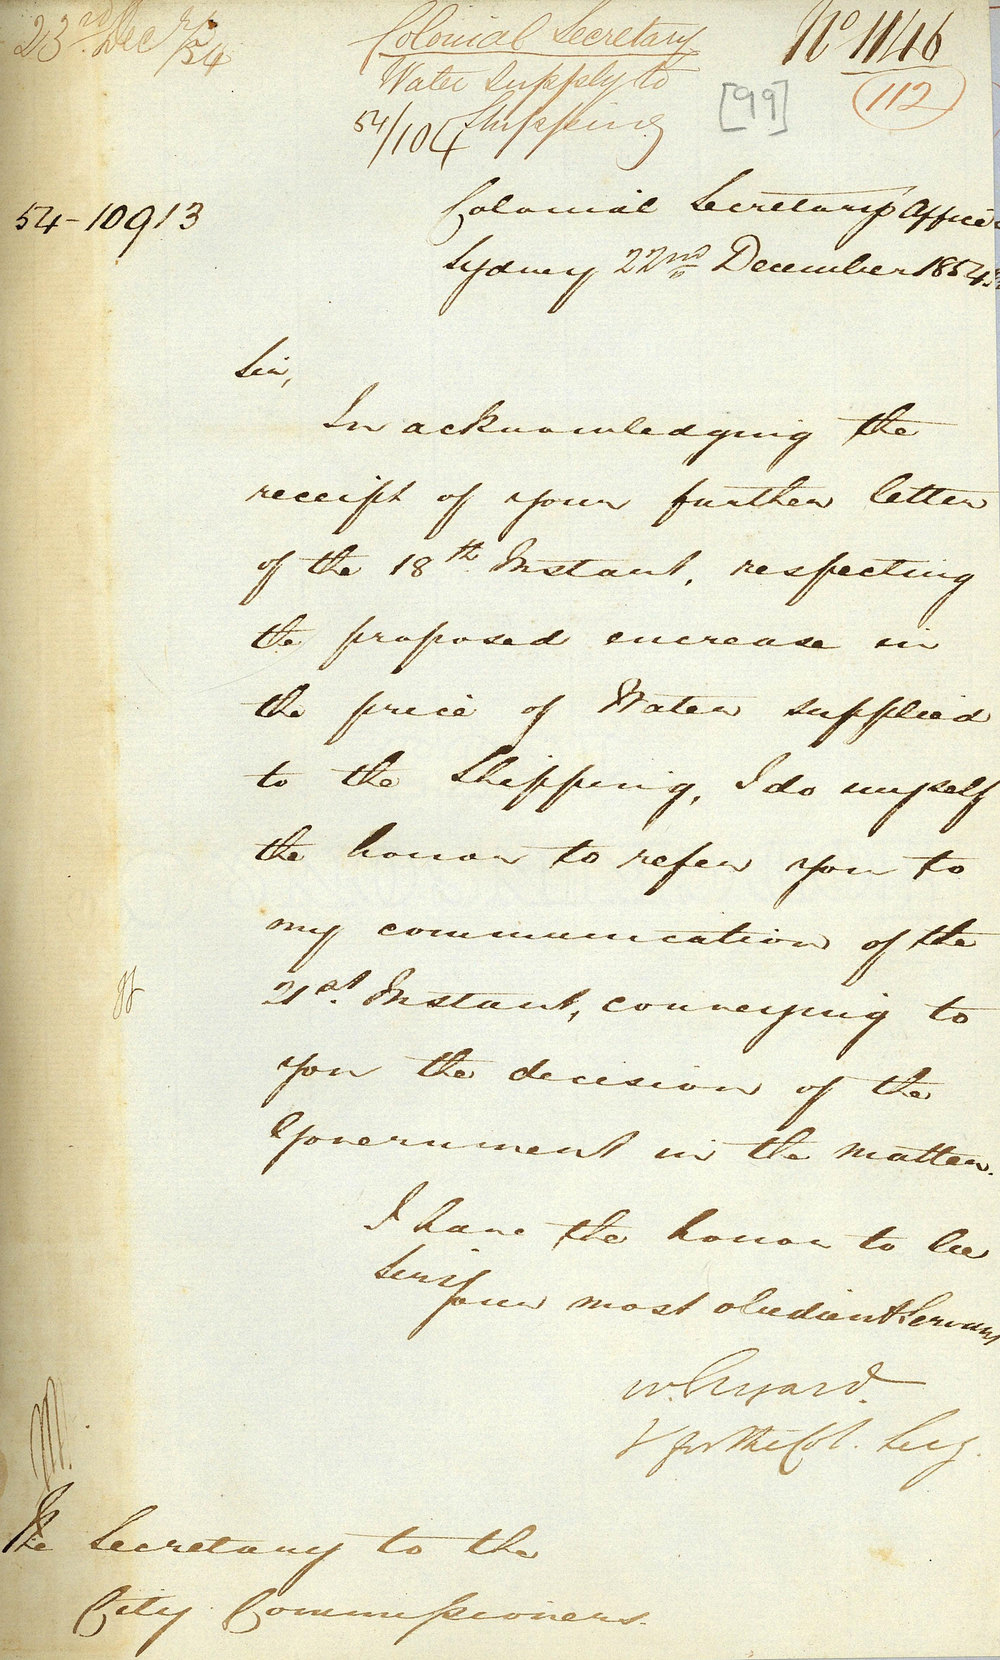 23rd Dec /54
Colonial Secretary
Water supply to
Shipping
54/104
No 11/46
[99]
112
54-10913
Colonial Secretary's Office
Sydney 22nd December 1854.
Sir,
In acknowledging the
receipt of your further letter
of the 18th Instant, respecting
the proposed encrease in
the price of Water supplied
to the Shipping, I do myself
the honor to refer you to
my communication of the
21st Instant, conveying to
you the decision of the
Government in the matter.
I have the honor to be
Sir,
Your most obedient Servant
W. Elyard.
for the Col. Secy.
The Secretary to the
City Commissioners.